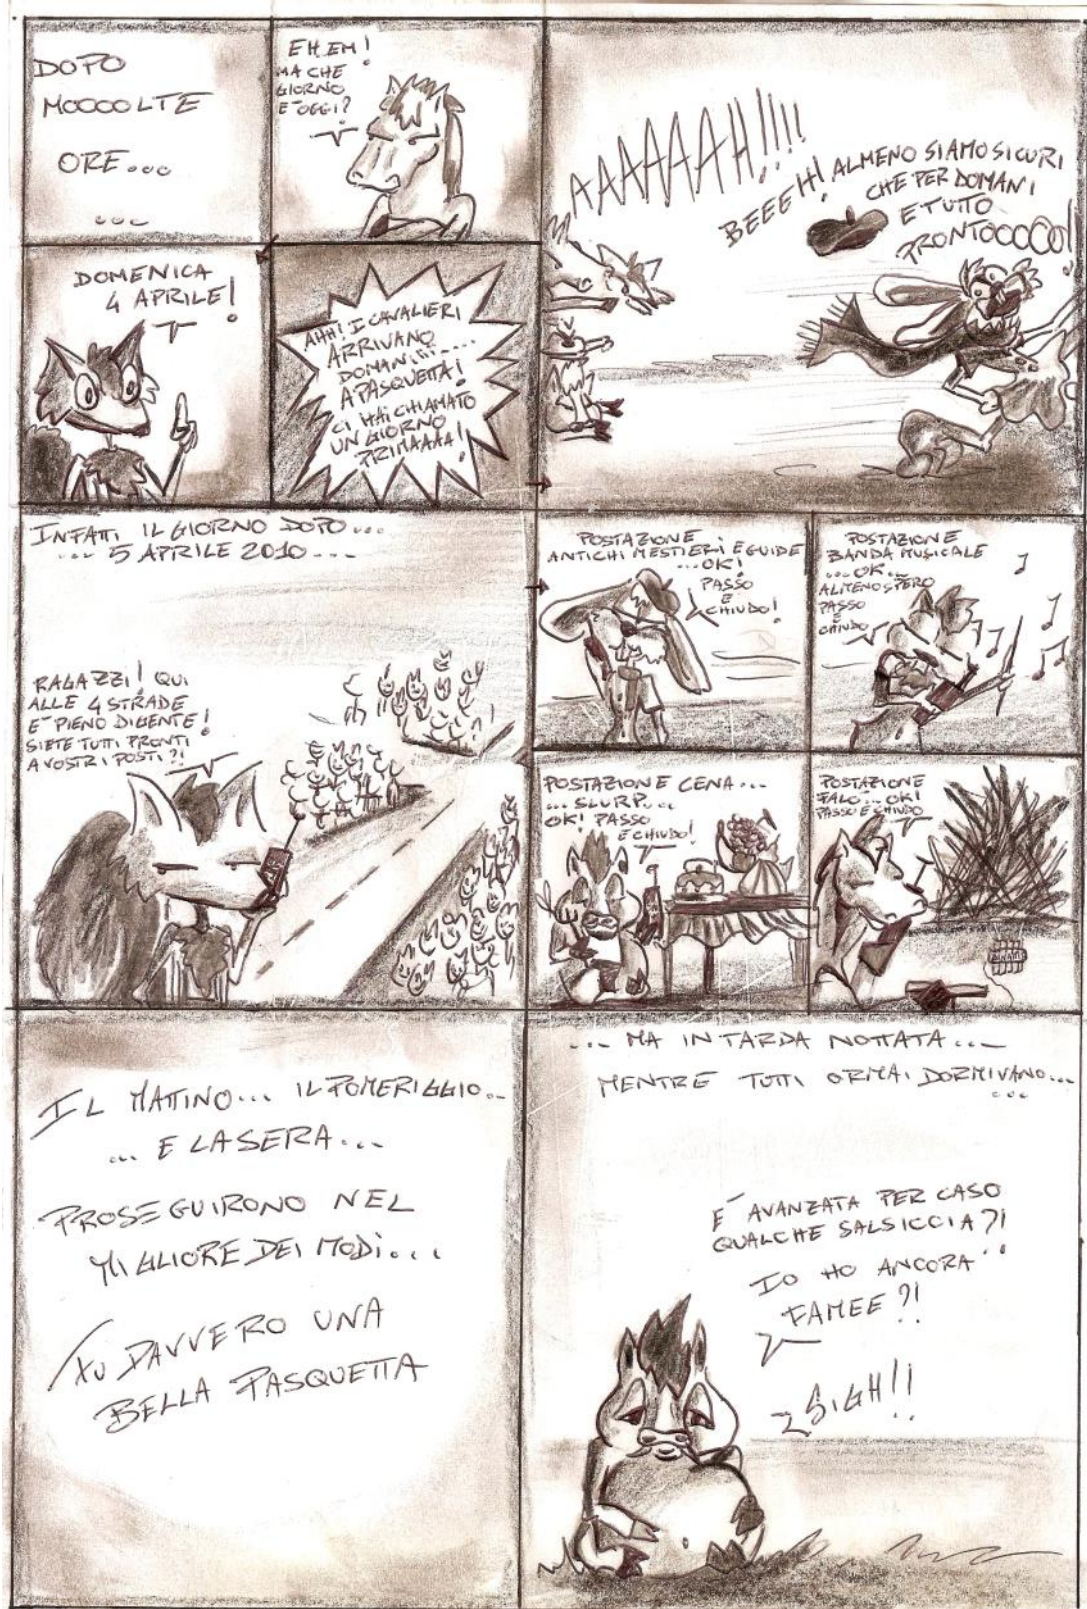 DOPO
MOOOOLTE
ORE...
...
EHEM!
MA CHE
GIORNO
E' OGGI?
DOMENICA
4 APRILE!
AHH! I CAVALIERI
ARRIVANO
DOMANI.....
A PASQUETTA!
CI HAI CHIAMATO
UN GIORNO
PRIMAAAA!
AAAAAAH!!!!
BEEEH! ALMENO SIAMO SICURI
CHE PER DOMANI
E TUTTO
PRONTOOOOO!
INFATTI IL GIORNO DOPO...
... 5 APRILE 2010 ...
RAGAZZI! QUI
ALLE 4 STRADE
E' PIENO DI GENTE!
SIETE TUTTI PRONTI
A VOSTRI POSTI?!
POSTAZIONE
ANTICHI MESTIERI E GUIDE
...OK!
PASSO
E
CHIUDO!
POSTAZIONE
BANDA MUSICALE
...OK...
ALMENO SPERO
PASSO
E
CHIUDO
POSTAZIONE CENA...
...SLURP...
OK! PASSO
E CHIUDO!
POSTAZIONE
FALO'... OK!
PASSO E CHIUDO
IL MATTINO... IL POMERIGGIO...
... E LA SERA...
PROSEGUIRONO NEL
MIGLIORE DEI MODI...
FU DAVVERO UNA
BELLA PASQUETTA
... MA IN TARDA NOTTATA...
MENTRE TUTTI ORMAI DORMIVANO...
...
E' AVANZATA PER CASO
QUALCHE SALSICCIA?!
IO HO ANCORA
FAMEE?!
SIGH!!